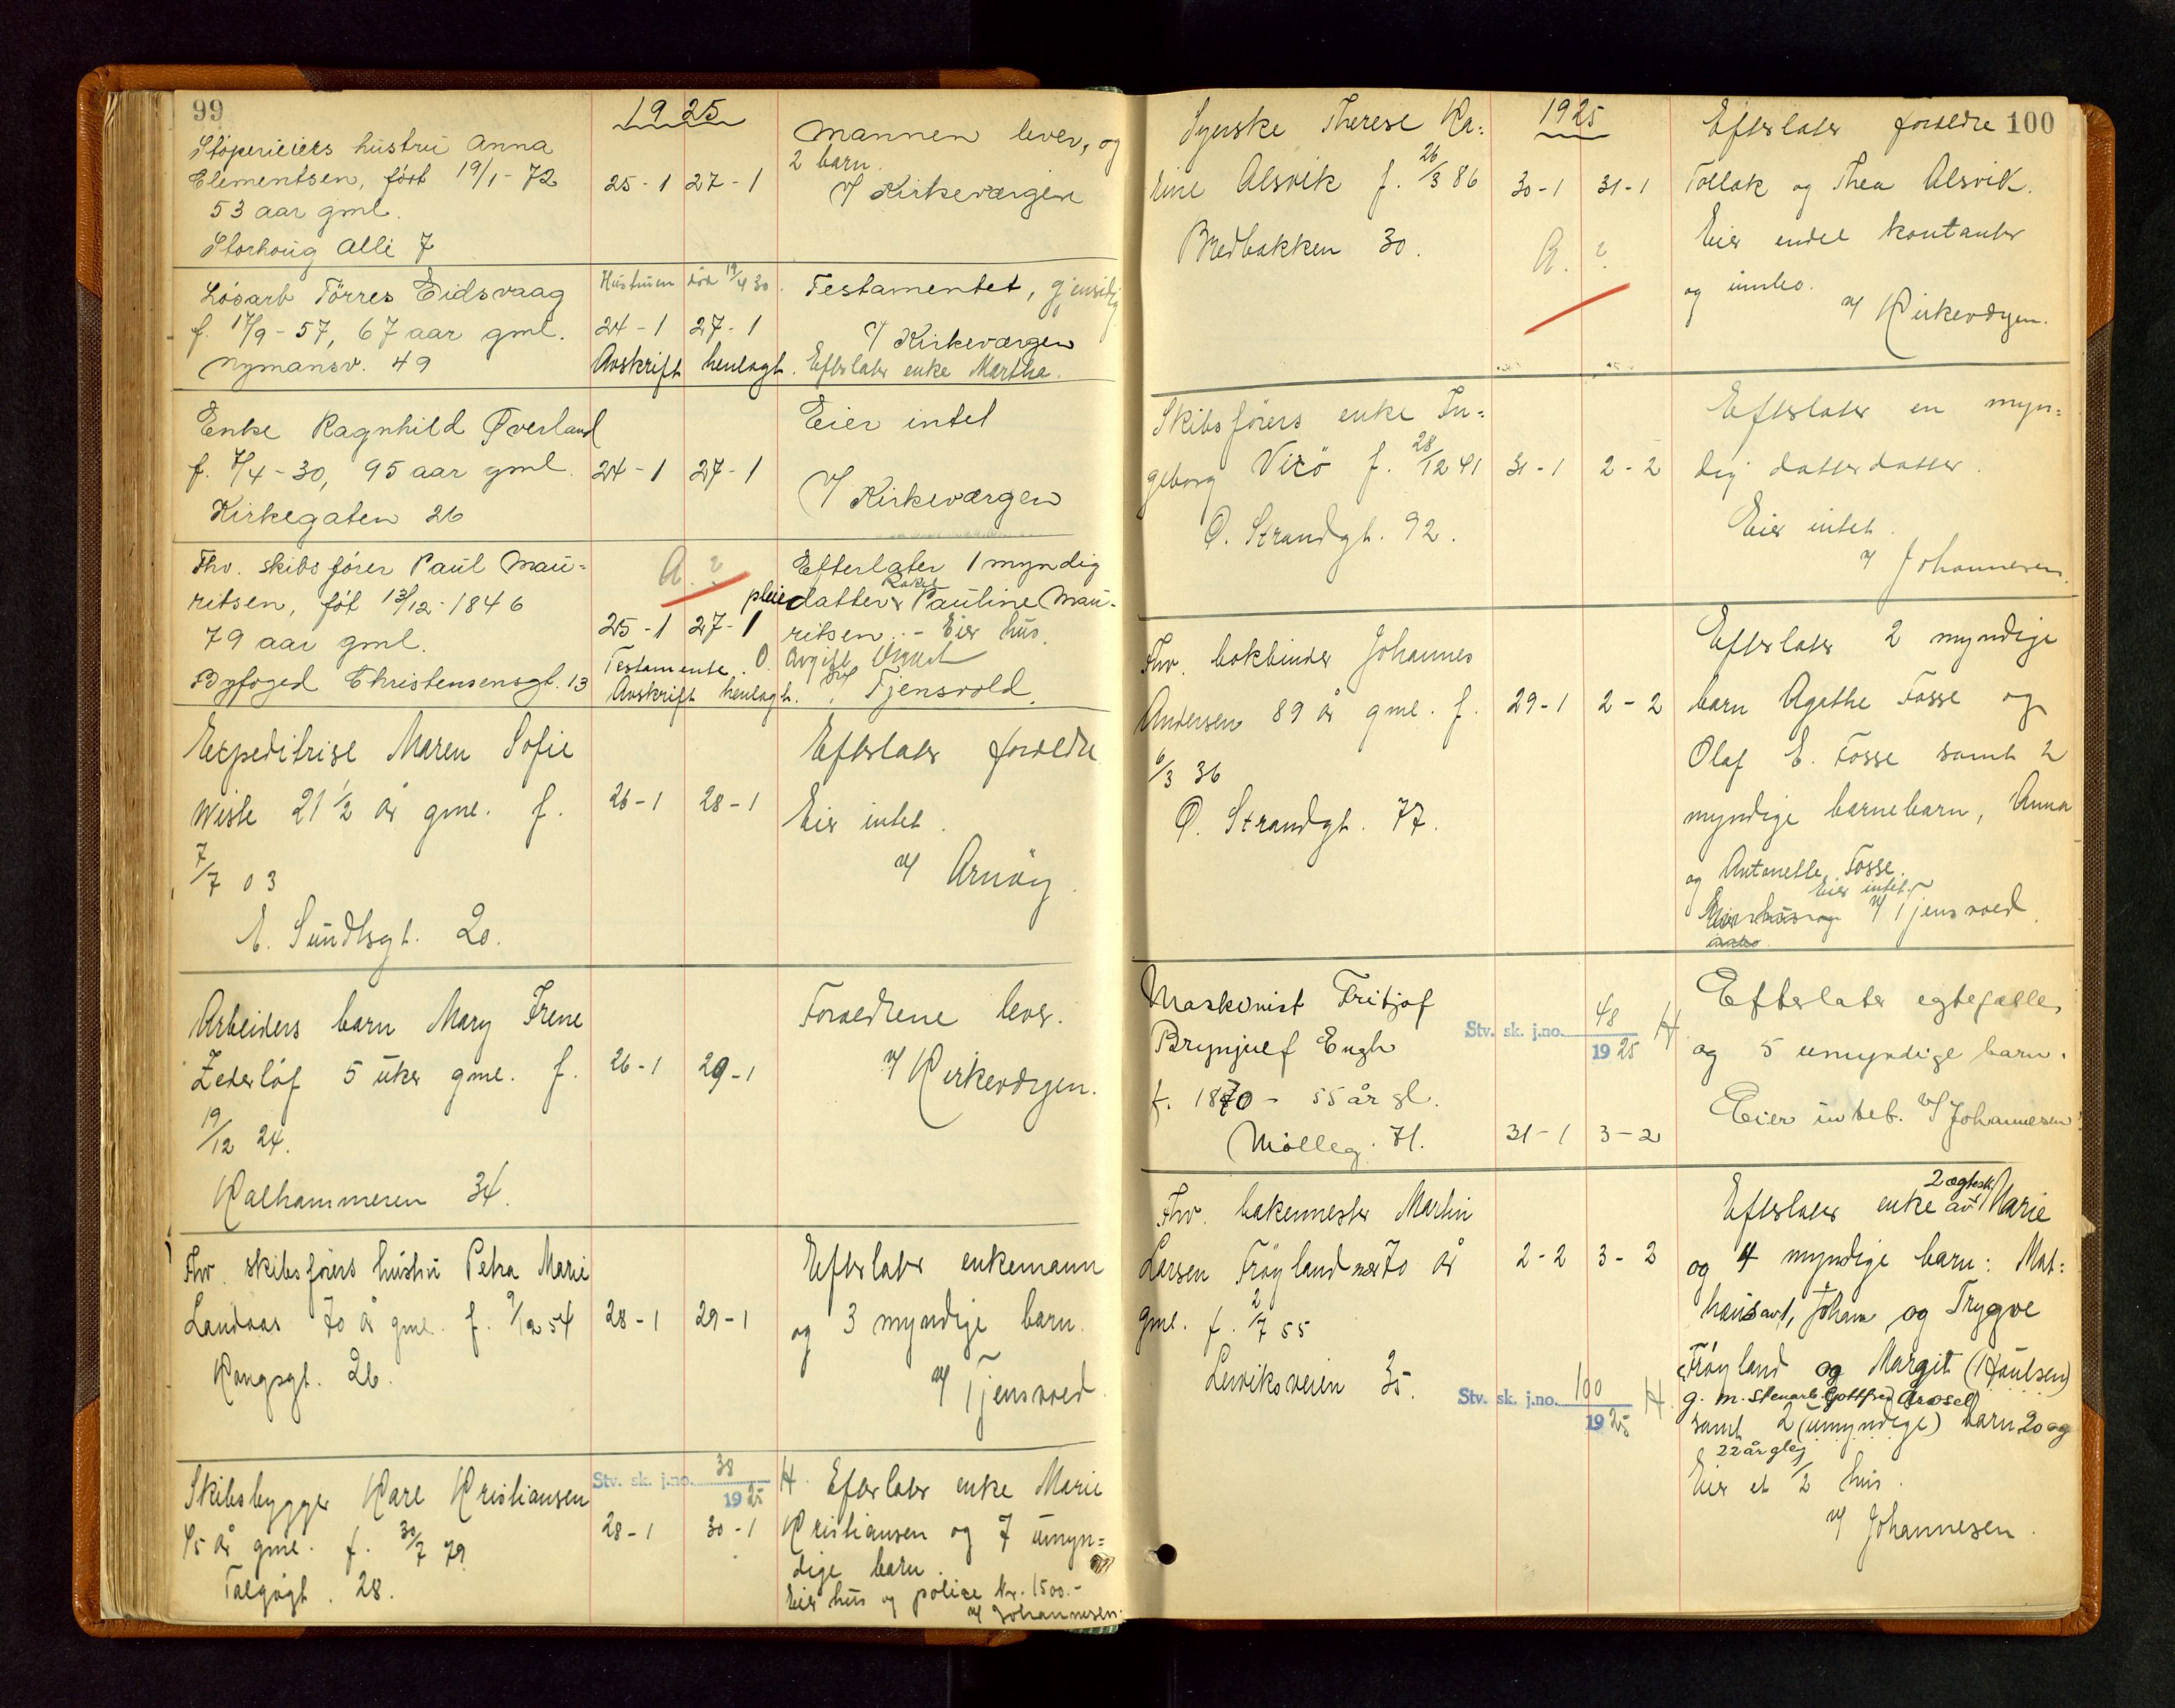 99
1925
Støperieiers hustru Anna
Clementsen, født 19/1-72
53 aar gml.
Storhoug Allé 7
25-1 27-1
Mannen lever, og
2 barn.
v/ Kirkeværgen
Løsarb Tørres Eidsvaag
f. 17/9-57, 67 aar gml.
Nymansv. 49
Hustruen død 19/4 30.
24-1 27-1
Avskrift henlagt.
Testamentet, gjensidig
v/ Kirkeværgen
Efterlater enke Martha.
Enke Ragnhild Øverland
f. 7/4-30, 95 aar gml.
Kirkegaten 26
24-1 27-1
Eier intet
v/ Kirkeværgen
Fhv. skibsfører Paul Mau-
ritsen, føt 13/12-1846
79 aar gml.
Byfoged Christensensgt. 13
A. 2
25-1 27-1
Testamente. O.
Avskrift henlagt.
Efterlater 1 myndig
pleiedatter Rakel Pauline Mau-
ritsen. - Eier hus.
Avgift
v/ Tjensvold.
Expeditrise Maren Sofie
Wiste 21 1/2 år gml. f.
7/7 03
E. Sundtsgt. 20.
26-1 28-1
Efterlater foreldre
Eier intet.
v/ Arnøy.
Arbeiders barn Mary Irene
Zederløf 5 uker gml. f.
19/12 24.
Kalhammeren 34.
26-1 29-1
Foreldrene lever.
v/ Kirkeværgen.
Fhv. skibsførers hustru Petra Marie
Landaas 70 år gml. f. 9/12 54
Kongsgt. 26.
28-1 29-1
Efterlater enkemann
og 3 myndige barn.
v/ Tjensvold.
Skibsbygger Karl Kristiansen
45 år gml. f. 30/7 79
Talgøgt. 28.
Stv. sk. j.no. 38
1925
28-1 30-1
H. Efterlater enke Marie
Kristiansen og 7 umyn=
dige barn.
Eier hus og police kr. 1500.-
v/ Johannesen.
100
1925
Syerske Therese Ka=
rine Alsvik f. 26/3 86
Bredbakken 30.
30-1 31-1
A. 2.
Efterlater foreldre
Tollak og Thea Alsvik.
Eier endel kontanter
og innbo.
v/ Kirkeværgen.
Skibsførers enke In=
geborg Virø f. 28/12 41
Ø. Strandgt. 92.
31-1 2-2
Efterlater en myn=
dig datterdatter.
Eier intet.
v/ Johannesen.
Fhv. bokbinder Johannes
Andersen 89 år gml. f.
6/3 36
Ø. Strandgt. 77.
29-1 2-2
Efterlater 2 myndige
barn Agathe Fosse og
Olaf E. Fosse samt 2
myndige barnebarn, Anna
og Antonette Fosse.
Eier intet.
v/ Tjensvold.
Maskinist Fritjof
Brynjulf Engh
f. 1870 - 55 år gl.
Mølleg. 71.
Stv. sk. j.no. 48 H
1925
31-1 3-2
Efterlater egtefælle,
og 5 umyndige barn.
Eier intet. v/ Johannesen
Fhv. bakermester Martin
Larsen Frøyland nær 70 år
gml. f. 2/7 55
Lerviksveien 35.
2-2 3-2
Stv. sk. j.no. 100 H.
1925
Efterlater enke av 2 ægtesk. Marie
og 4 myndige barn: Mat=
haus , Johan og Trygve
Frøyland og Margit (Paulsen)
g. m. stenarb. Gottfred Arosel
samt 2 (umyndige) barn 20 og
22 år glej
Eier et 1/2 hus.
v/ Johannesen.